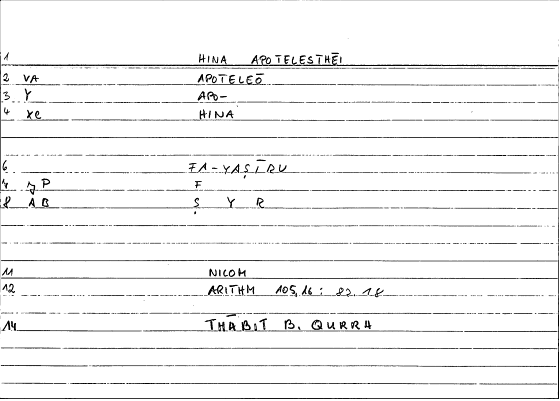 1 HINA APOTELESTHĒI
2 VA APOTELEŌ
3 Y APO-
4 XC HINA
6 FA-YAṢĪRU
7 P F
8 AB Ṣ Y R
11 NICOM
12 ARITHM 105,16 : 82,18
14 THĀBIT B. QURRA